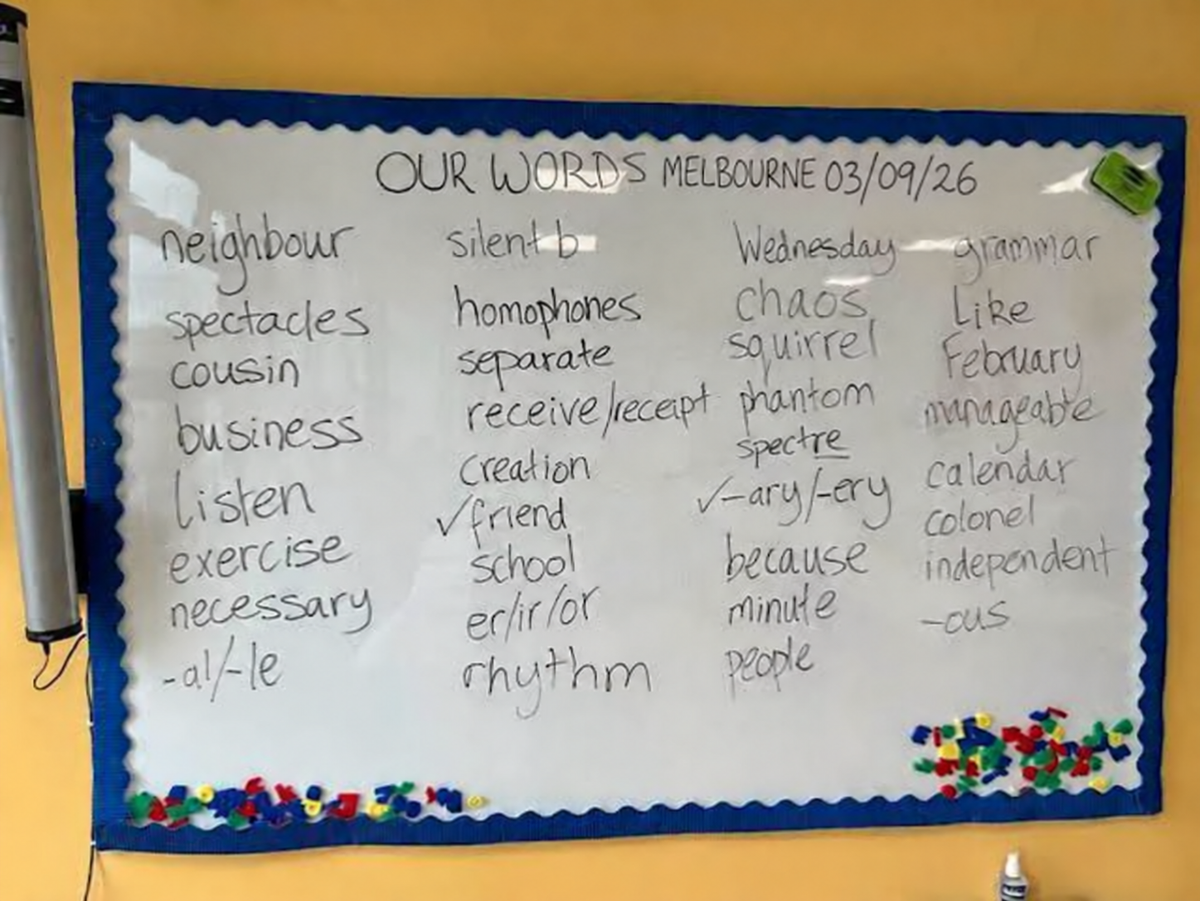 OUR WORDS MELBOURNE 03/09/26
neighbour
spectacles
cousin
business
Listen
exercise
necessary
-al/-le
silent b
homophones
separate
receive/receipt
creation
✓friend
school
er/ir/or
rhythm
Wednesday
chaos
squirrel
phantom
spectre
✓-ary/-ery
because
minute
people
grammar
Like
February
manageable
calendar
colonel
independent
-ous